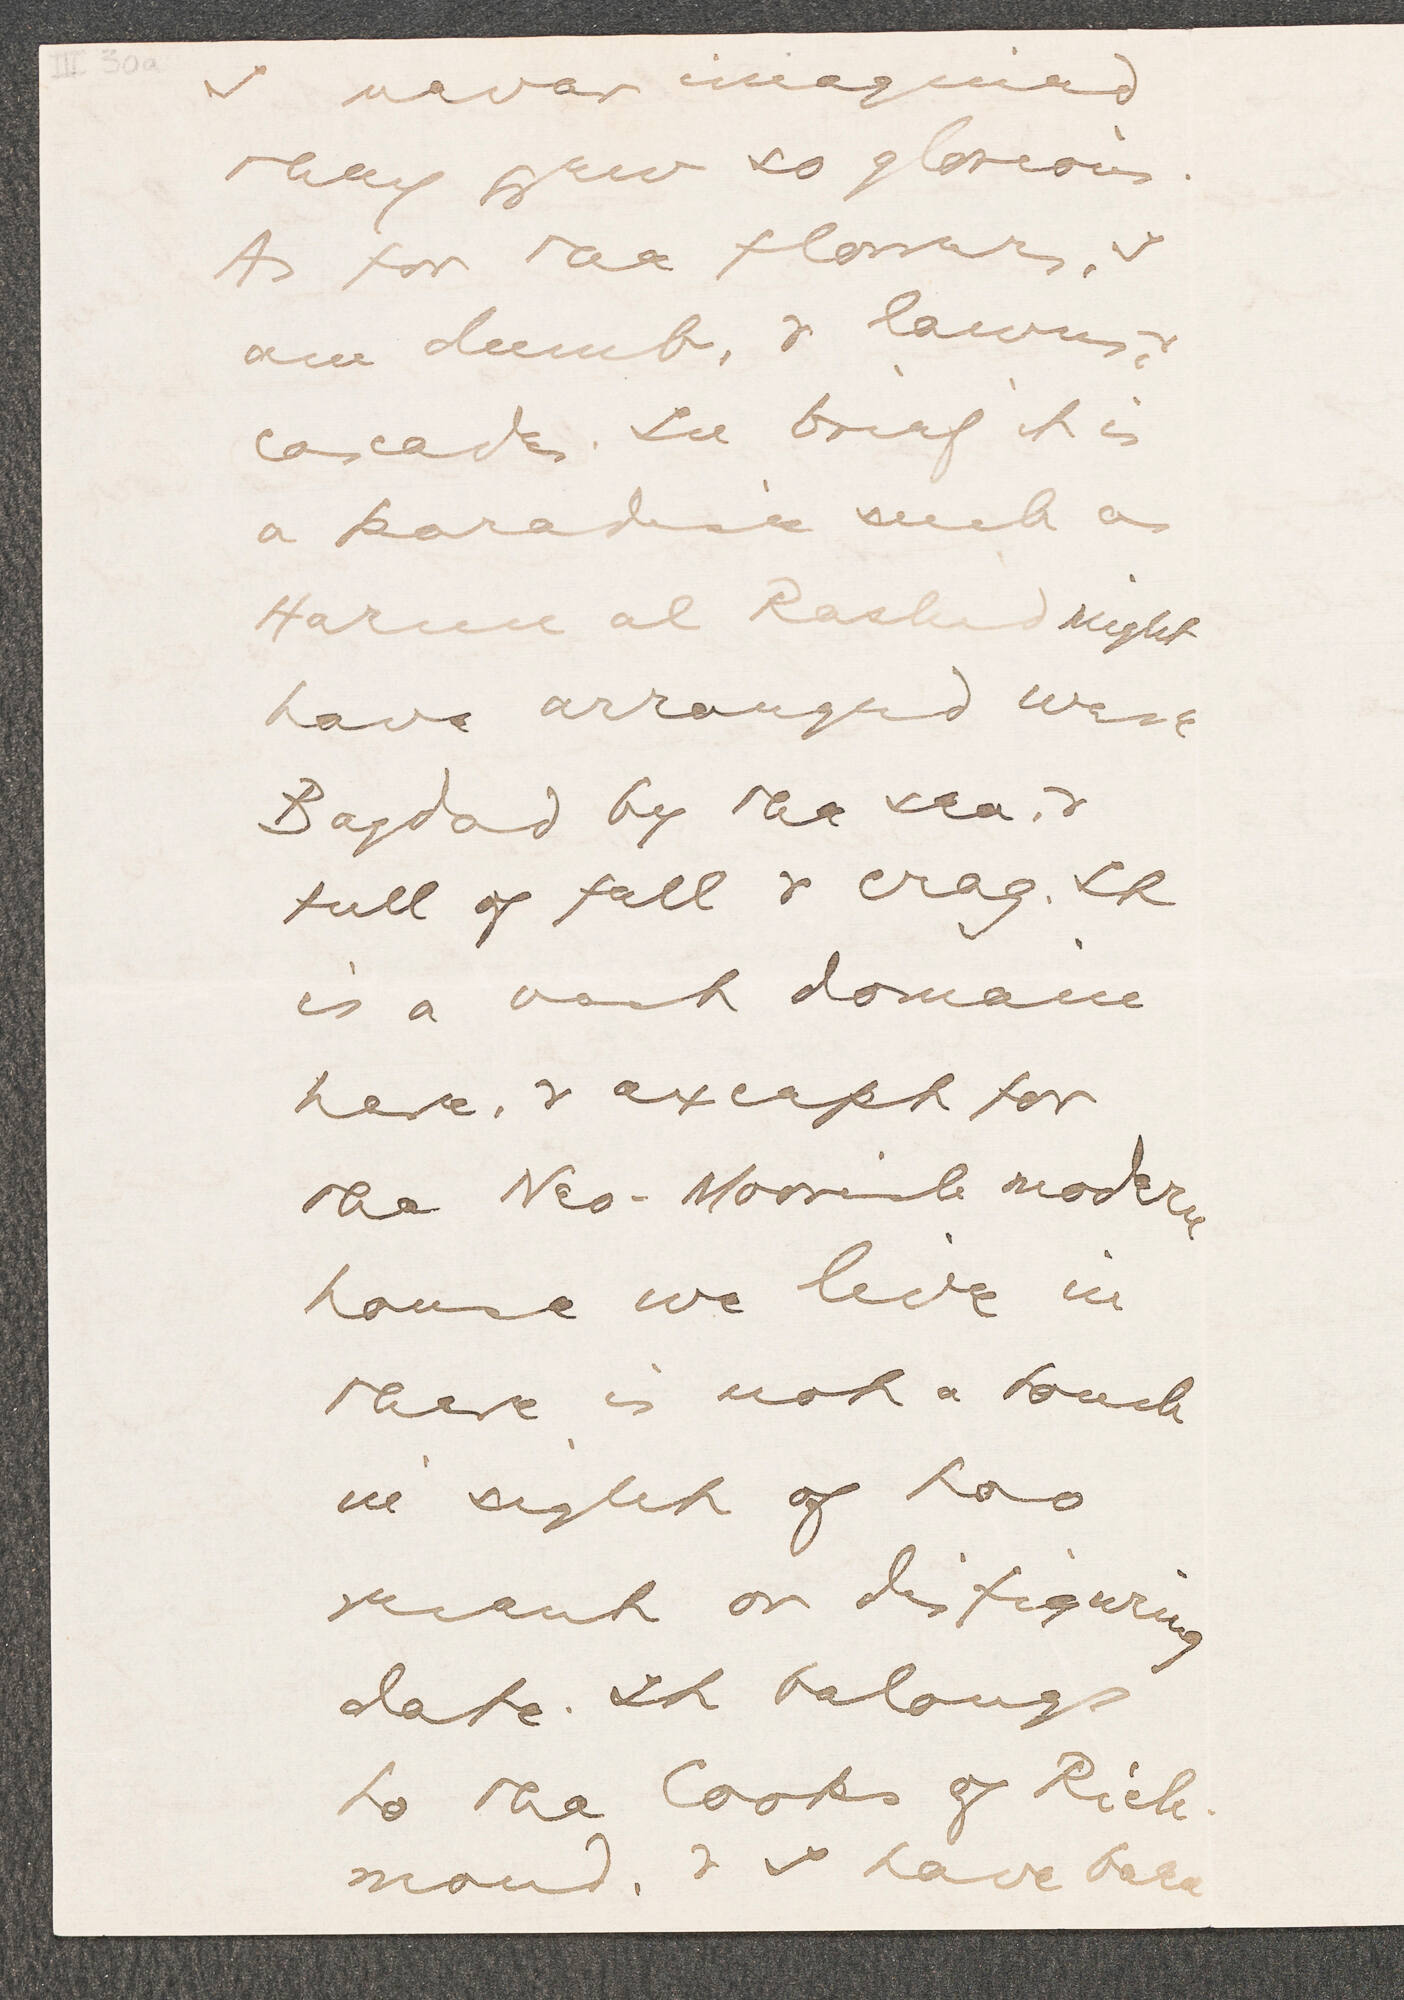 III 30a
I never imagined
they grew so glorious.
As for the flowers, I
am dumb, & lawns, &
cascades. In brief it is
a paradise such as
Harun al Rashid might
have arranged were
Bagdad by the sea, &
full of fall & crag. It
is a vast domain
here, & except for
the Neo-Moorish modern
house we live in
there is not a touch
in sight of too
recent or disfiguring
date. It belongs
to the Cooks of Rich-
mond, & I have been